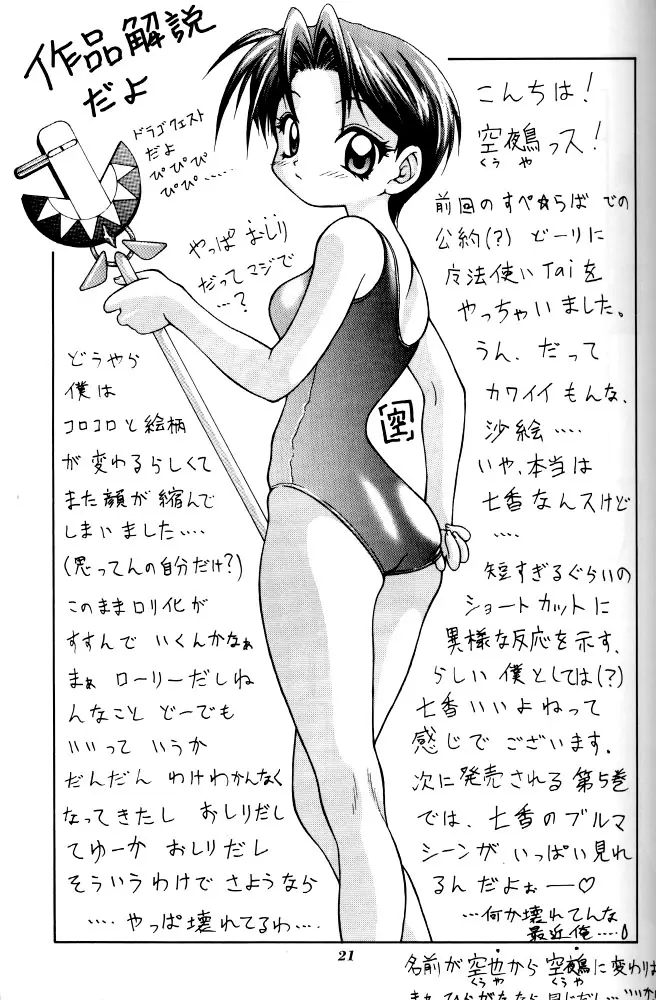 作品解説
だよ
ドラゴクエスト
だよ
ぴぴぴ
ぴぴ……
やっぱ おしり
だってマジで
…?
こんちは!
空鵺っス!
くうや
前回のすぺ☆らばでの
公約(?)どーりに
魔法使いTaiを
やっちゃいました。
うん、だって
カワイイもんな、
沙絵….
いや、本当は
七香なんスけど
….
短すぎるぐらいの
ショートカットに
異様な反応を示す、
らしい僕としては(?)
七香いいよねって
感じでございます。
次に発売される第5巻
では、七香のブルマ
シーンがいっぱい見れ
るんだよぉ—♡
…何か壊れてんな
最近俺….
空
どうやら
僕は
コロコロと絵柄
が変わるらしくて
また顔が縮んで
しまいました….
(思ってんの自分だけ?)
このままロリ化が
すすんで いくんかなぁ
まぁ ローリーだしね
んなこと どーでも
いいって いうか
だんだん わけわかんなく
なってきたし おしりだし
てゆーか おしりだし
そういうわけで さようなら
….やっぱ壊れてるわ….
21
名前が空也から空鵺に変わりま
くうや くうや